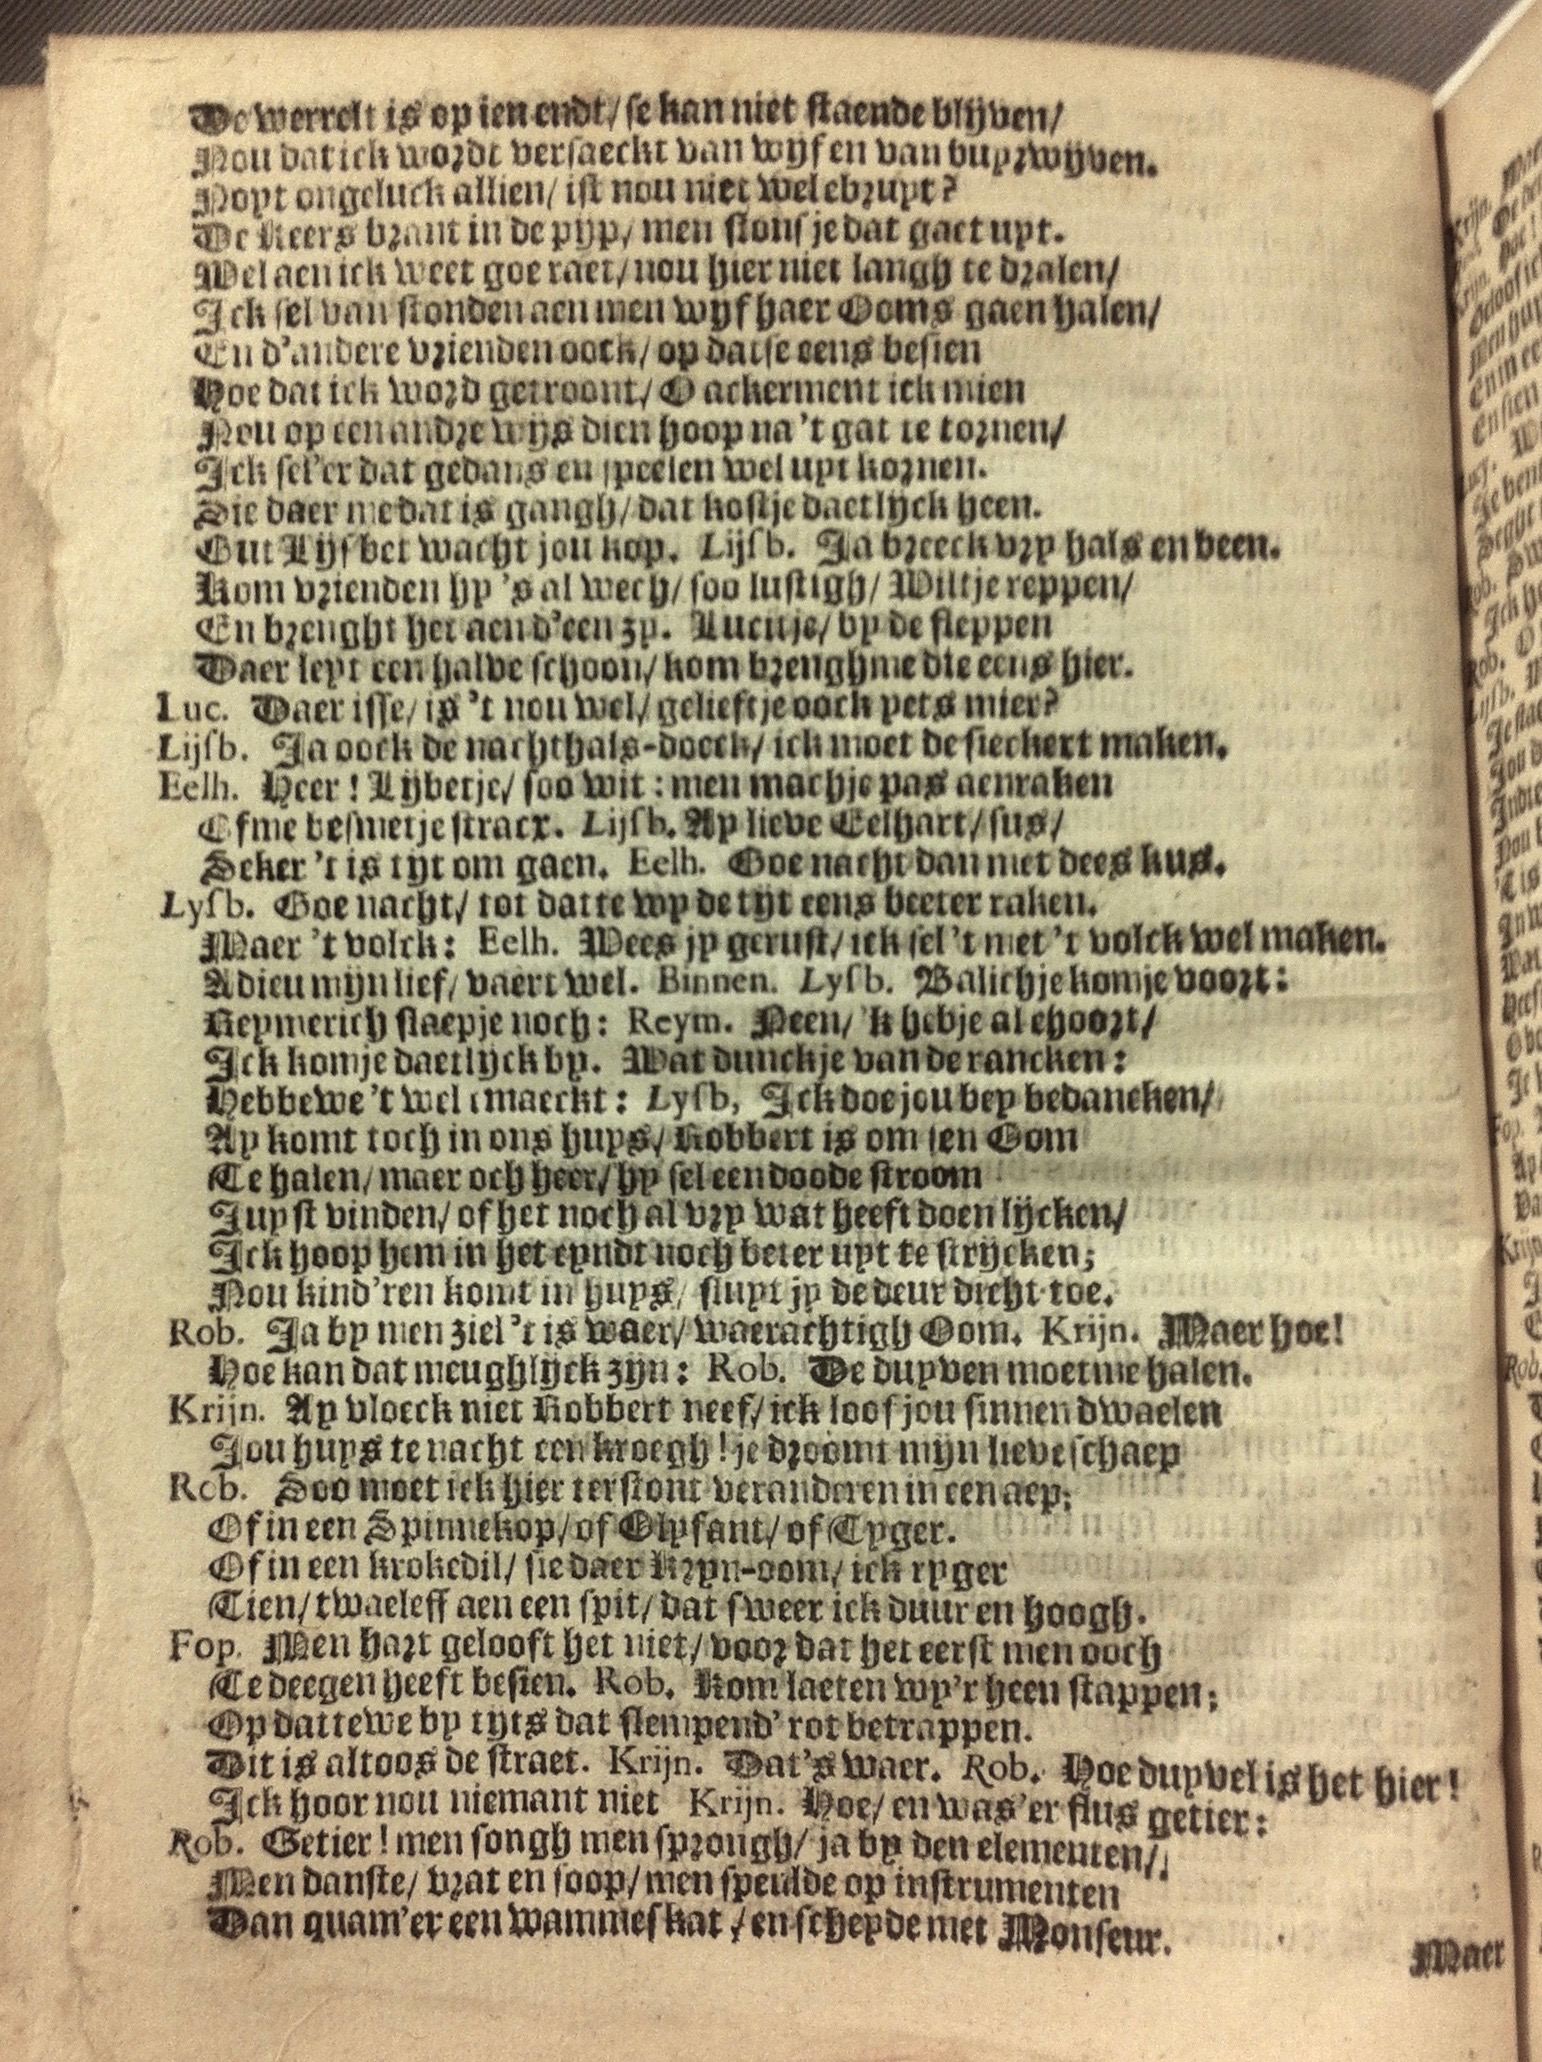 De werrelt is op ien endt/ se kan niet staende blijven/
Nou dat ick wordt versaeckt van wijf en van buyrwijven.
Noyt ongeluck allien/ ist nou niet wel ebruyt?
De Keers brant in de pijp/ men slons je dat gaet uyt.
Wel aen ick weet goe raet/ nou hier niet langh te dralen/
Ick sel van stonden aen men wijf haer Ooms gaen halen/
En d'andere vrienden oock/ op datse eens besien
Hoe dat ick word getroont/ O ackerment ick mien
Nou op een andre wijs dien hoop na 't gat te tornen/
Ick sel'er dat gedans en speelen wel uyt kornen.
Sie daer me dat is gangh/ dat kostje daetlijck heen.
Gut Lijsbet wacht jou kop. Lijsb. Ja breeck vry hals en been.
Kom vrienden hy 's al wech/ soo lustigh/ Wilt je reppen/
En brenght het aen d'een zy. Lucutje/ by de steppen
Daer leyt een halve schoon/ kom brenghme die eens hier.
Luc. Daer isse/ is 't nou wel/ gelieftje oock yets mier?
Lijsb. Ja oock de nachthals-doeck/ ick moet de sieckert maken.
Eelh. Heer! Lijbetje/ soo wit: men machje pas aenraken
Ofme besmetje stracx. Lijsb. Ay lieve Eelhart/ sus/
Seker 't is tijt om gaen. Eelh. Goe nacht dan met dees kus.
Lysb. Goe nacht/ tot datte wy de tijt eens beeter raken.
Maer 't volck: Eelh. Wees jy gerust/ ick sel 't met 't volck wel maken.
Adieu mijn lief/ vaert wel. Binnen. Lysb. Balichje komje voort:
Reymerich slaepje noch: Reym. Neen/ 'k hebje al ehoort/
Ick komje daetlijck by. Wat dunckje van de rancken:
Hebbewe 't wel emaeckt: Lysb, Ick doe jou bey bedancken/
Ay komt toch in ons huys/ Robbert is om sen Oom
Te halen/ maer och heer/ hy sel een doode stroom
Juyst vinden/ of het noch al vry wat heeft doen lijcken/
Ick hoop hem in het eyndt noch beter uyt te strijcken;
Nou kind'ren komt in huys/ sluyt jy de deur dicht toe.
Rob. Ja by men ziel 't is waer/ waerachtigh Oom. Krijn. Maer hoe!
Hoe kan dat meughlijck zijn: Rob. De duyven moetme halen.
Krijn. Ay vloeck niet Robbert neef/ ick loof jou sinnen dwaelen
Jou huys te nacht een kroegh! je droomt mijn lieve schaep
Rob. Soo moet ick hier terstont veranderen in een aep;
Of in een Spinnekop/ of Olyfant/ of Tyger.
Of in een krokedil/ sie daer Kryn-oom/ ick ryger
Tien/ twaeleff aen een spit/ dat sweer ick duur en hoogh.
Fop. Men hart gelooft het niet/ voor dat het eerst men ooch
Te deegen heeft besien. Rob. Kom laeten wy'r heen stappen;
Op dattewe by tijts dat slempend' rot betrappen.
Dit is altoos de straet. Krijn. Dat's waer. Rob. Hoe duyvel is het hier!
Ick hoor nou niemant niet Krijn. Hoe/ en was'er flus getier:
Rob. Getier! men songh men sprough/ ja by den elementen/
Men danste/ vrat en soop/ men speulde op instrumenten
Dan quam'er een wammeskat/ en scheyde met Monseur.
Maer